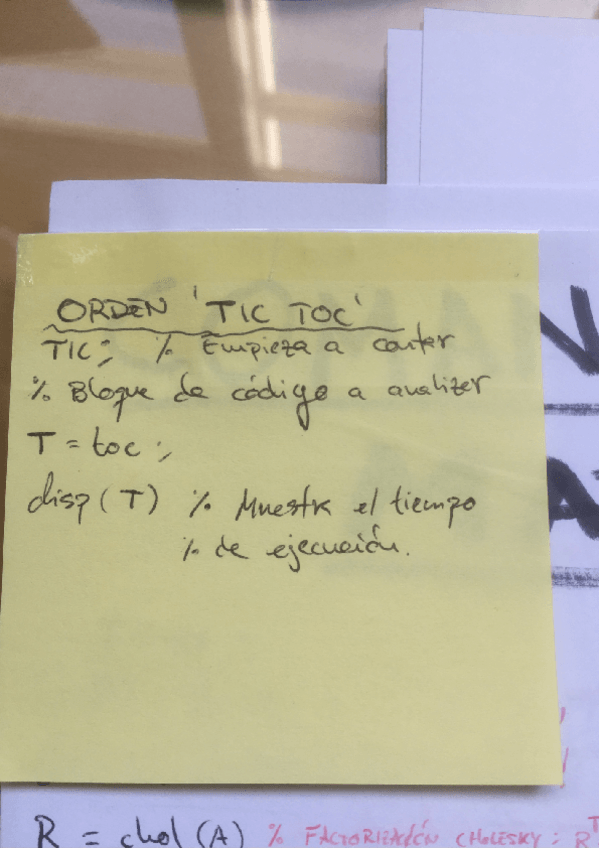 ORDEN 'TIC TOC'
TIC; % Empieza a contar
% Bloque de código a analizar
T = toc;
disp(T) % Muestra el tiempo
% de ejecución.
R = chol(A) % FACTORIZACIÓN CHOLESKY: R^T